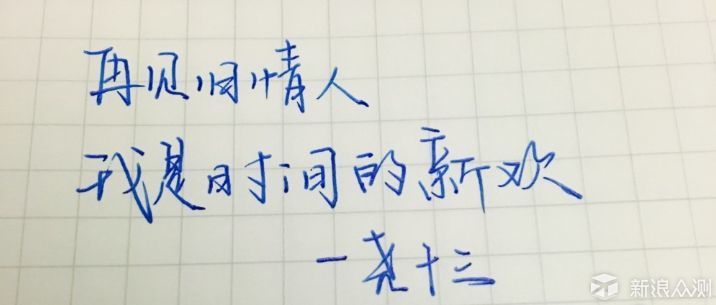 再见旧情人
我是时间的新欢
一尧十三
新浪众测